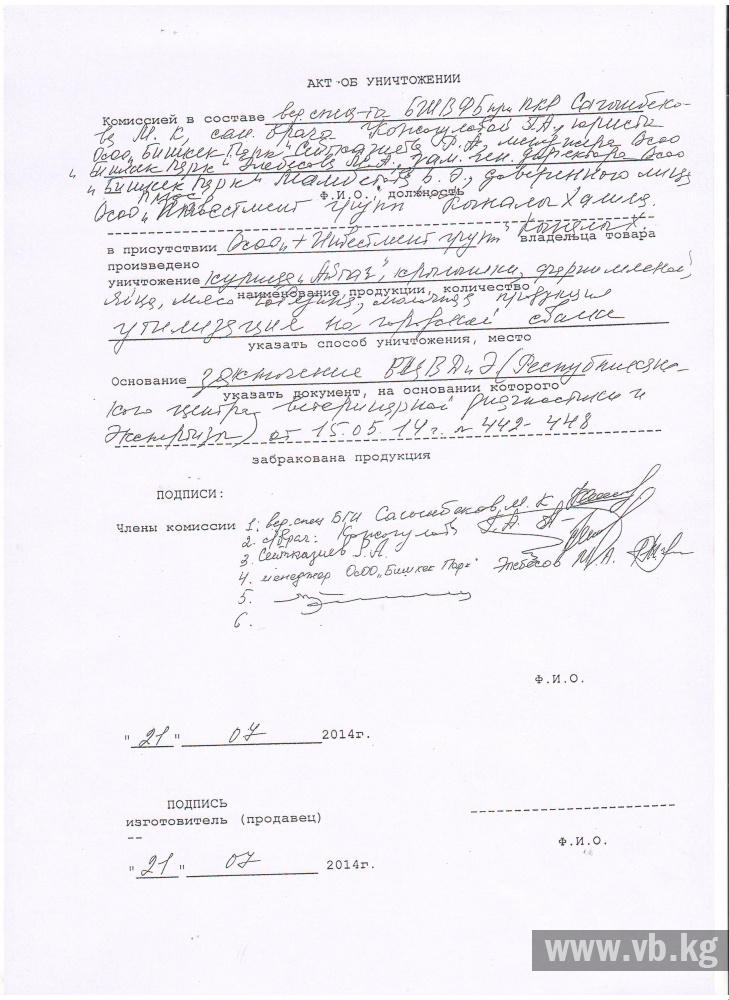 АКТ ОБ УНИЧТОЖЕНИИ
Комиссией в составе вед. спец-та БГИВФБ при ПКР Сагынбеко-
ва М. К, сан. врача Г.А., юриста
ОсОО „Бишкек Парк" Сейтказиева Р. А, менеджера ОсОО
„Бишкек Парк" Элебесов М. А., зам. ген. директора ОсОО
„Бишкек Парк" Б. Э., доверенного лица
Ф.И.О., должность
ОсОО „Инвестмент групп
в присутствии ОсОО „Инвестмент групп" владельца товара
произведено
уничтожение курица „Айгаз", крольчатина,
наименование продукции, количество
яйца, мясо говядина, молочная продукция
утилизация на городской свалке
указать способ уничтожения, место
Основание заключение РЦВДиЭ (Республиканс-
указать документ, на основании которого
кого центра ветеринарной диагностики и
экспертизы) от 15.05.14г. № 442-448
забракована продукция
ПОДПИСИ:
Члены комиссии 1. вед. спец БГИ Сагынбеков М. К
2. с/врач: Г.А.
3. Сейтказиев Р.А.
4. менеджер ОсОО „Бишкек Парк" Элебесов М.А.
5.
6.
Ф.И.О.
"21" 07 2014г.
ПОДПИСЬ
изготовитель (продавец)
--
Ф.И.О.
"21" 07 2014г.
www.vb.kg